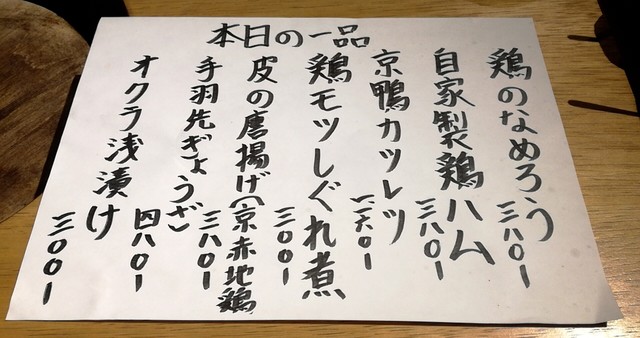 本日の一品
鶏のなめろう 三八〇ー
自家製鶏ハム 三八〇ー
京鴨カツレツ
鶏モツしぐれ煮 三〇〇ー
皮の唐揚げ(京赤地鶏 三八〇ー
手羽先ぎょうざ 四八〇ー
オクラ浅漬け 三〇〇ー